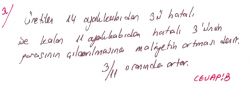 3) Üretilen 14 ayakkabıdan 3'ü hatalı
ise kalan 11 ayakkabıdan hatalı 3'ünün
parasının çıkarılmasına maliyetin artması denir.
3/11 oranında artar.
CEVAP:B